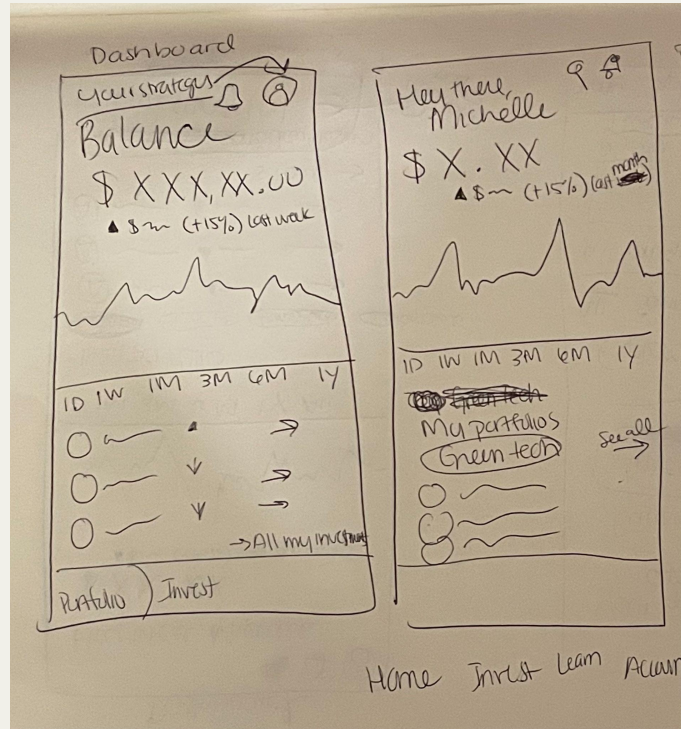 Dashboard
Your strategy
Balance
$ XXX,XX.00
▲ $~~ (+15%) last week
1D 1W 1M 3M 6M 1Y
→ All my investments
Portfolio Invest
Hey there,
Michelle
$ X.XX
▲ $~~ (+15%) (last month)
1D 1W 1M 3M 6M 1Y
Green tech
My portfolios
See all
Green tech
Home Invest Learn Accoun